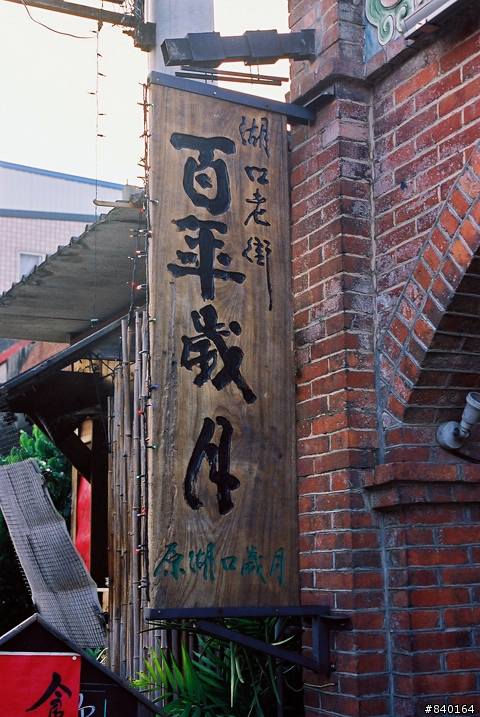 湖口老街
百年歲月
原湖口歲月
#840164